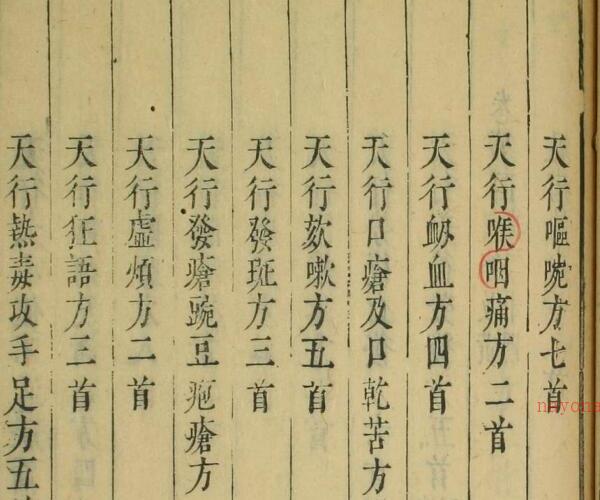 天行嘔啘方七首
天行喉咽痛方二首
天行衂血方四首
天行口瘡及口乾苦方
天行欬嗽方五首
天行發斑方三首
天行發瘡豌豆疱瘡方
天行虛煩方二首
天行狂語方三首
天行熱毒攻手足方五